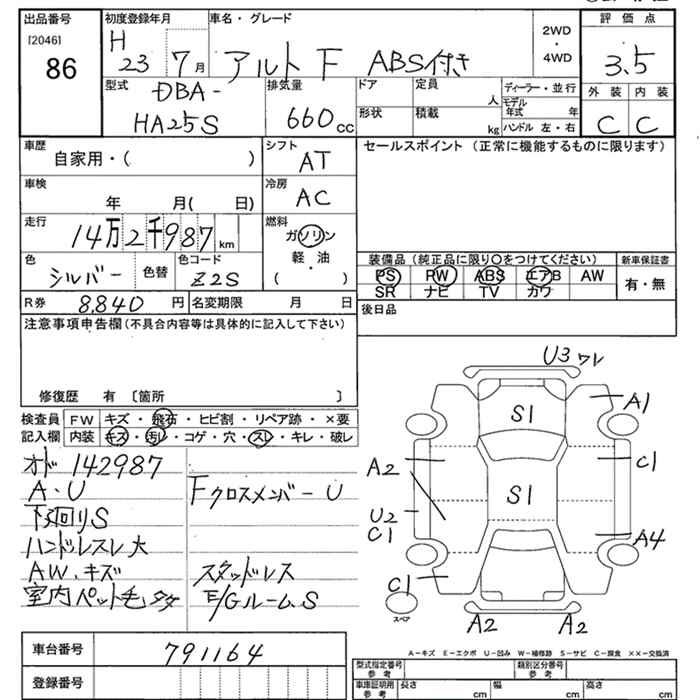 出品番号
[2046]
86
初度登録年月
H 23 7月
車名・グレード
アルト F ABS付き
2WD
・
4WD
評価点
3.5
外装 内装
C C
型式
DBA-
HA25S
排気量
660 cc
ドア
定員
人
形状
積載
kg
ディーラー・並行
モデル年式 年
ハンドル 左・右
車歴
自家用・( )
シフト
AT
車検
年 月( 日)
冷房
AC
走行
14万2千987 km
燃料
ガソリン
軽・油
・
( )
色
シルバー
色替
色コード
Z2S
R券 8,840 円
名変期限 月 日
セールスポイント (正常に機能するものに限ります)
装備品 (純正品に限り○をつけてください)
PS PW ABS エアB AW
SR ナビ TV カワ
新車保証書
有・無
後日品
注意事項申告欄 (不具合内容等は具体的に記入して下さい)
修復歴 有 〔箇所 〕
検査員
記入欄
FW キズ・飛石・ヒビ割・リペア跡・×要
内装 キズ・汚レ・コゲ・穴・スレ・キレ・破レ
オド 142987
A・U
下廻りS
ハンドルスレ大
AW、キズ
室内ペット毛タタ
Fクロスメンバー U
スタッドレス
E/Gルーム、S
U3 ワレ
S1
A1
A2
C1
S1
U2
C1
A4
C1
スペア
A2
A2
A-キズ E-エクボ U-凹み W-補修跡 S-サビ C-腐食 ××-交換済
車台番号 791164
登録番号
型式指定番号
参考
類別区分番号
参考
車庫証明用
参考
長さ cm
幅 cm
高さ cm